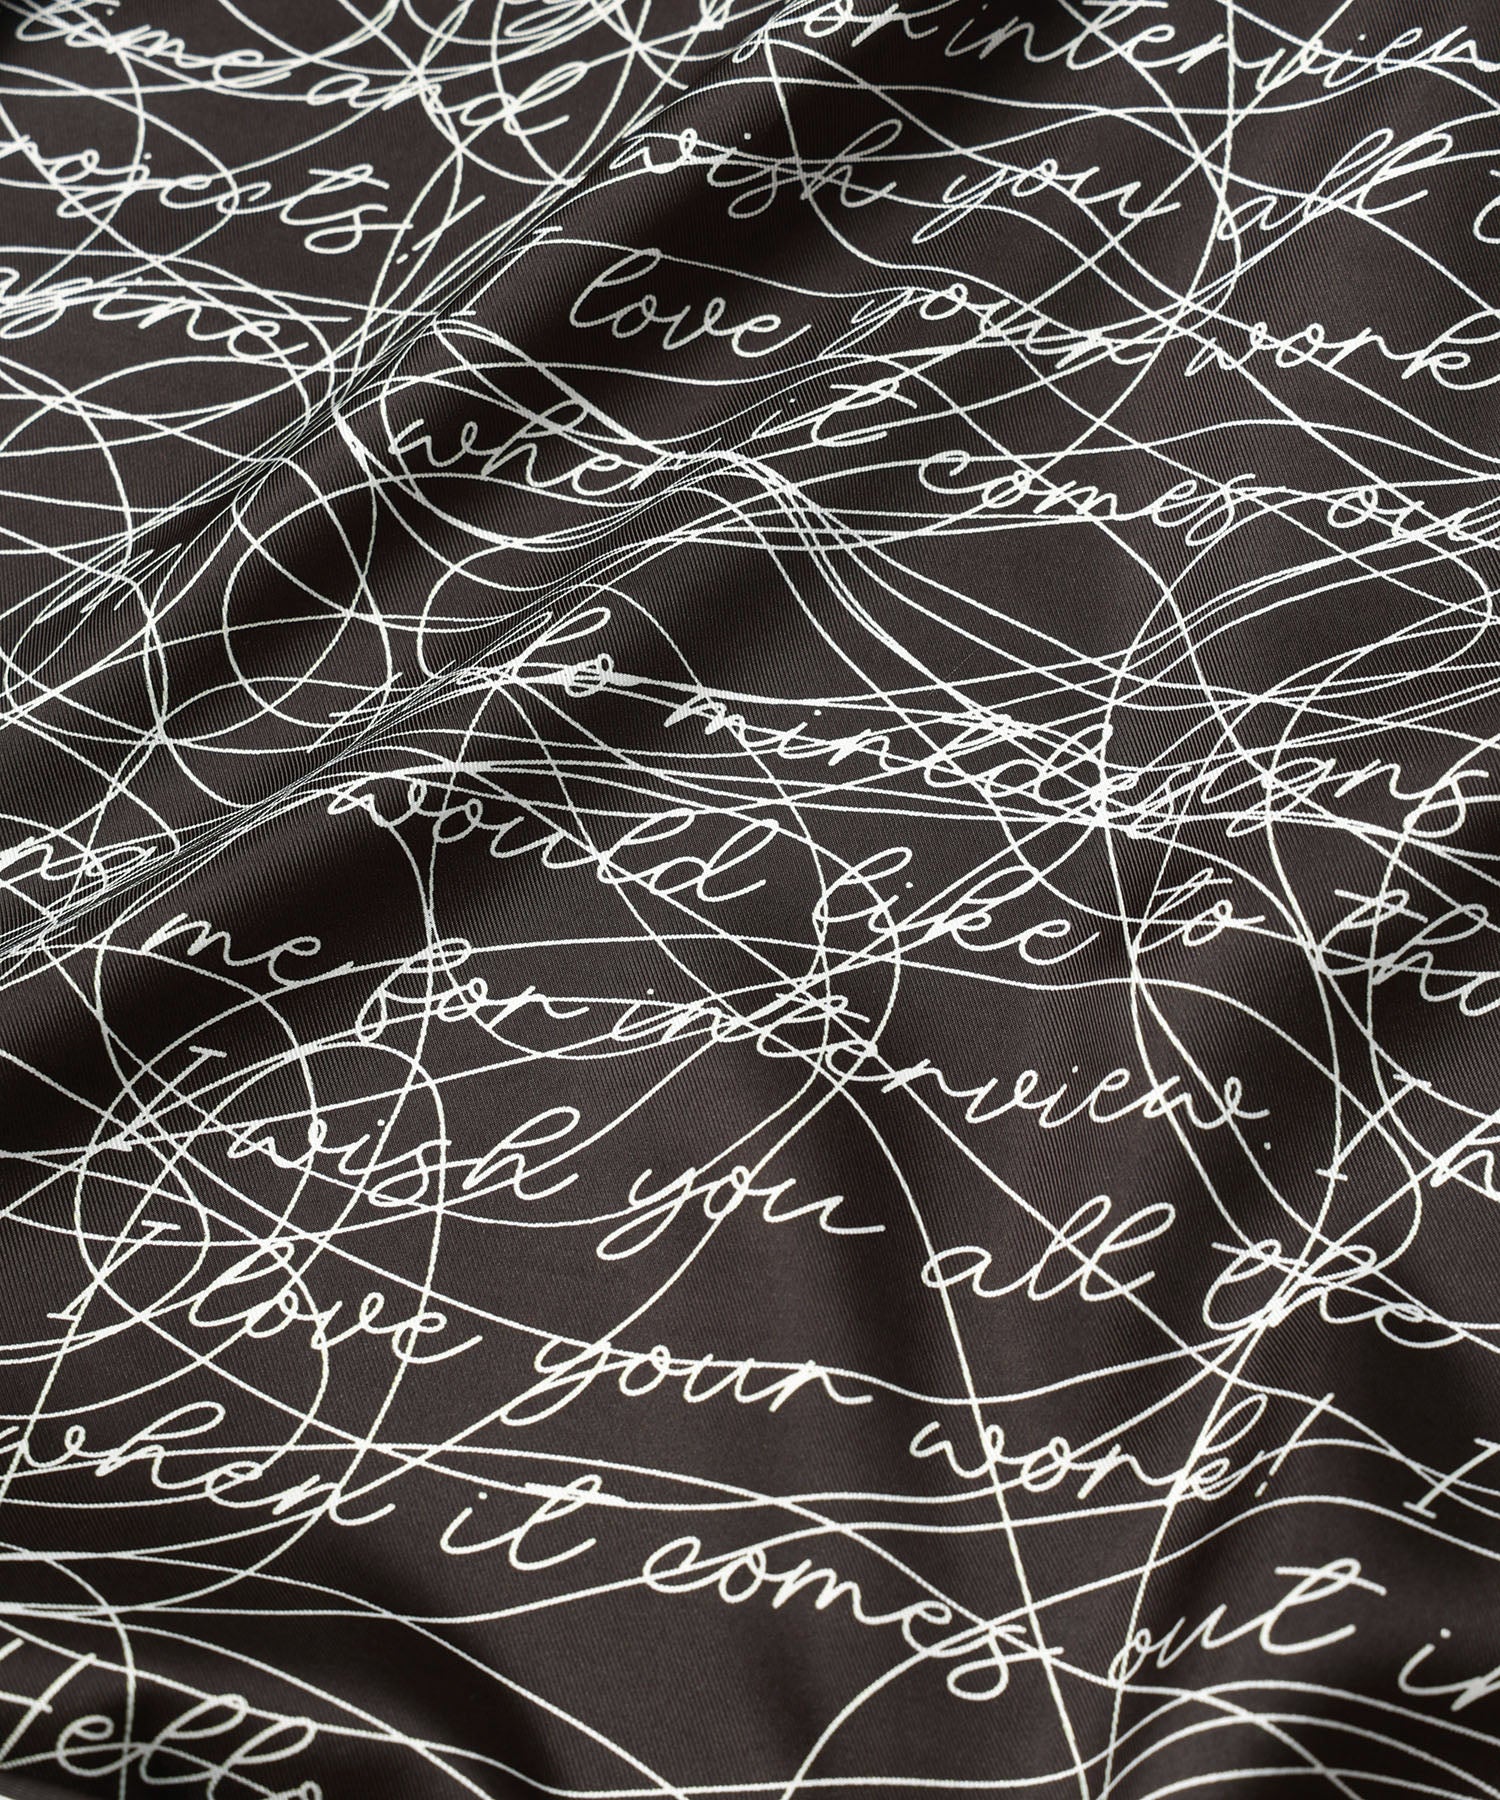 time and
for interview
projects!
wish you all
love your work
when it comes out
to mintdesigns
would like to
me for interview.
I wish you all the
I love your work! I
when it comes out in